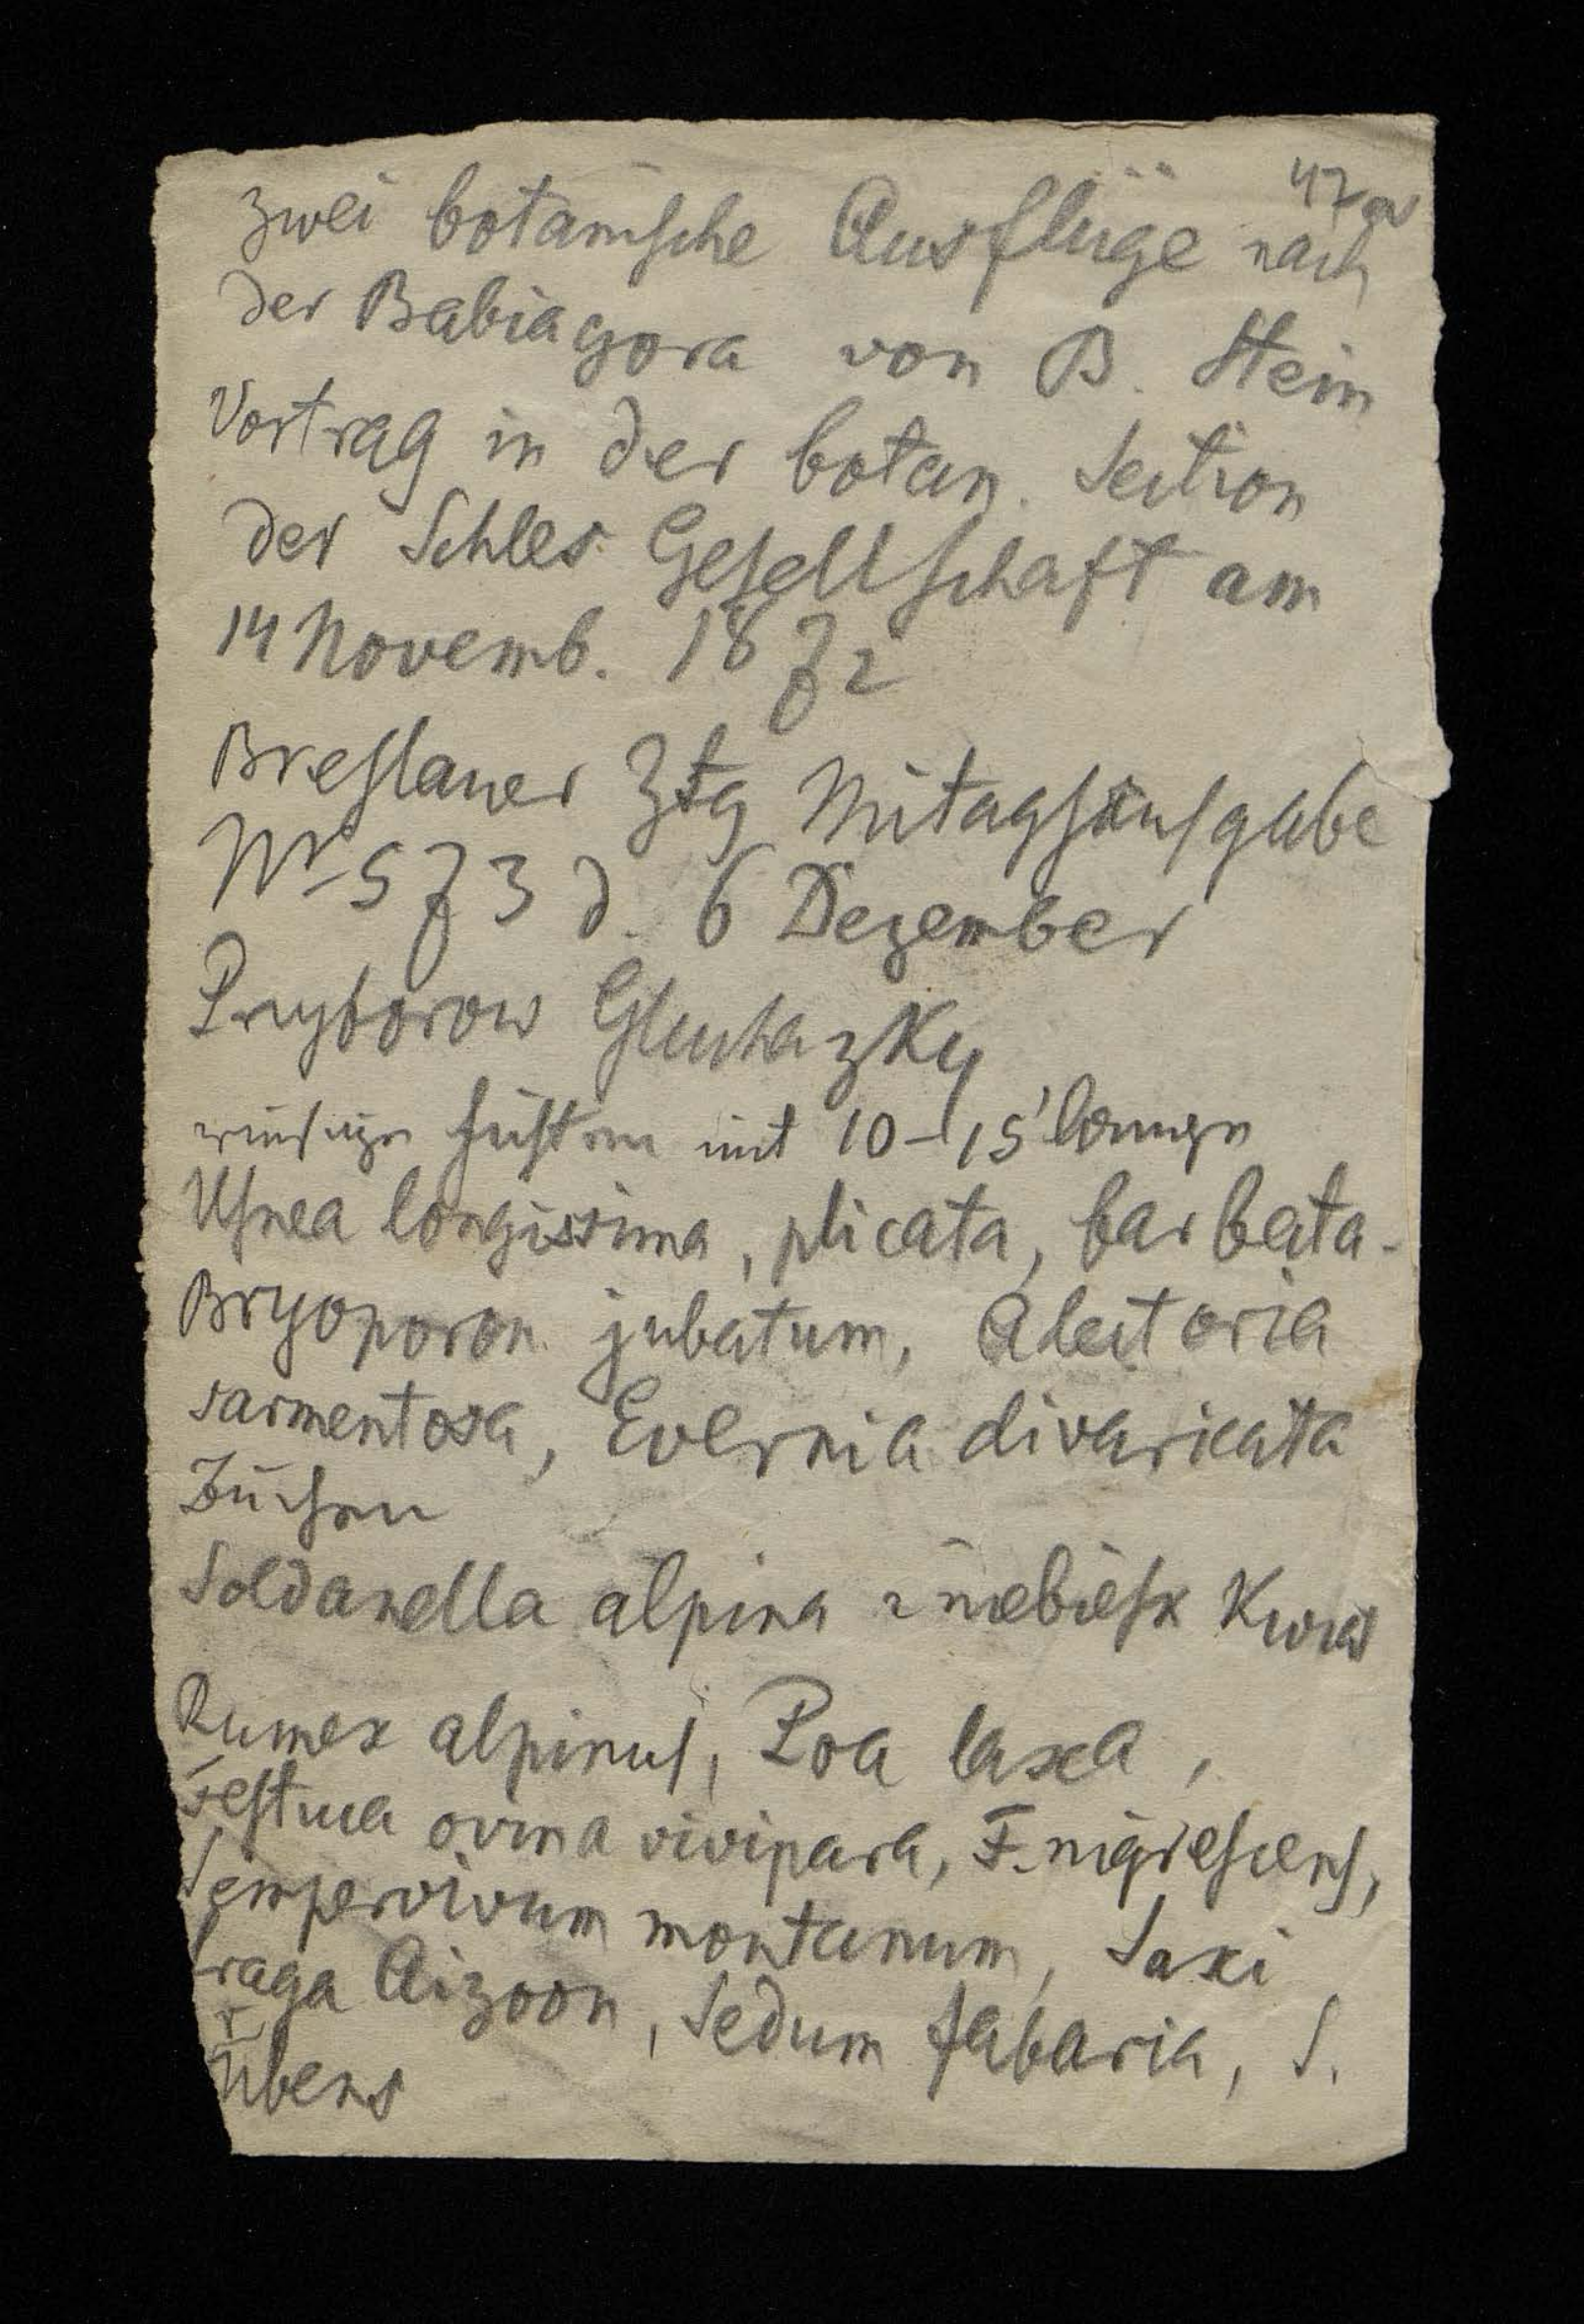 47a
Zwei botanische Ausflüge nach
der Babiagora von B. Stein
Vortrag in der botan. Section
der Schles. Gesellschaft am
14 Novemb. 1872
Breslauer Ztg Mitagsausgabe
Nr 573 d. 6 Dezember
Pryborow Gluchazky
riesige Fichten mit 10–15' langen
Usnea longissima, plicata, barbata-
Bryoporon jubatum, Alectoria
sarmentosa, Evernia divaricata
Soldanella alpina z niebiesk kwiat
Rumex alpinus, Poa laxa,
Festuca ovina vivipara, F. nigrescens,
Sempervivum montanum, Saxi
fraga Aizoon, Sedum fabaria, S.
rubens